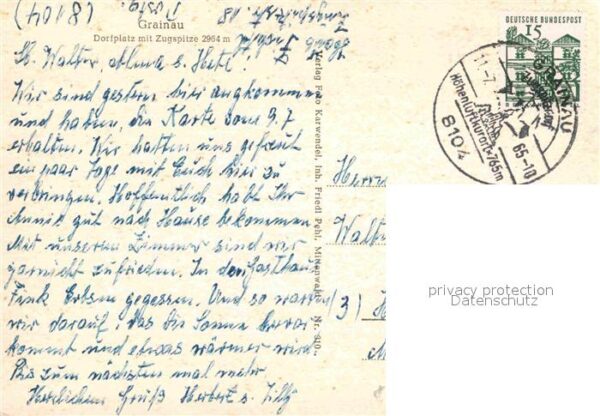 (8104)
Grainau
Dorfplatz mit Zugspitze 2964 m
Lb. Walter Alma u.
Wir sind gestern hier angekommen
und haben die Karte vom 9.7
erhalten. Wir hatten uns gefreut
ein paar Tage mit Euch hier zu
verbringen. Hoffentlich habt Ihr
gut nach Hause bekommen
Mit unserem Zimmer sind wir
garnicht zufrieden. In den Gasthaus
Fink Erbsen gegessen. Und so warten
wir darauf, das die Sonne hervor
kommt und etwas wärmer wird
Bis zum nächsten mal mehr
Herzlichen Gruß Herbert u.
Verlag Foto Karwendel, Inh. Friedl Pehl, Mittenwald Nr. 310
DEUTSCHE BUNDESPOST
15
GRAINAU
11.-7.
65-18
Höhenluftkurort · 765m
8104
Herrn
Walter
(3)
privacy protection
Datenschutz